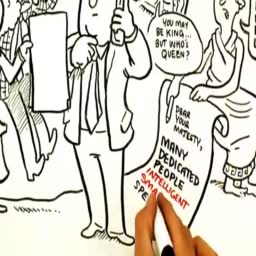 YOU MAY
BE KING...
BUT WHO'S
QUEEN?
DEAR
YOUR
MAJESTY,
MANY
DEDICATED
PEOPLE
INTELLIGENT
SMA
SPE